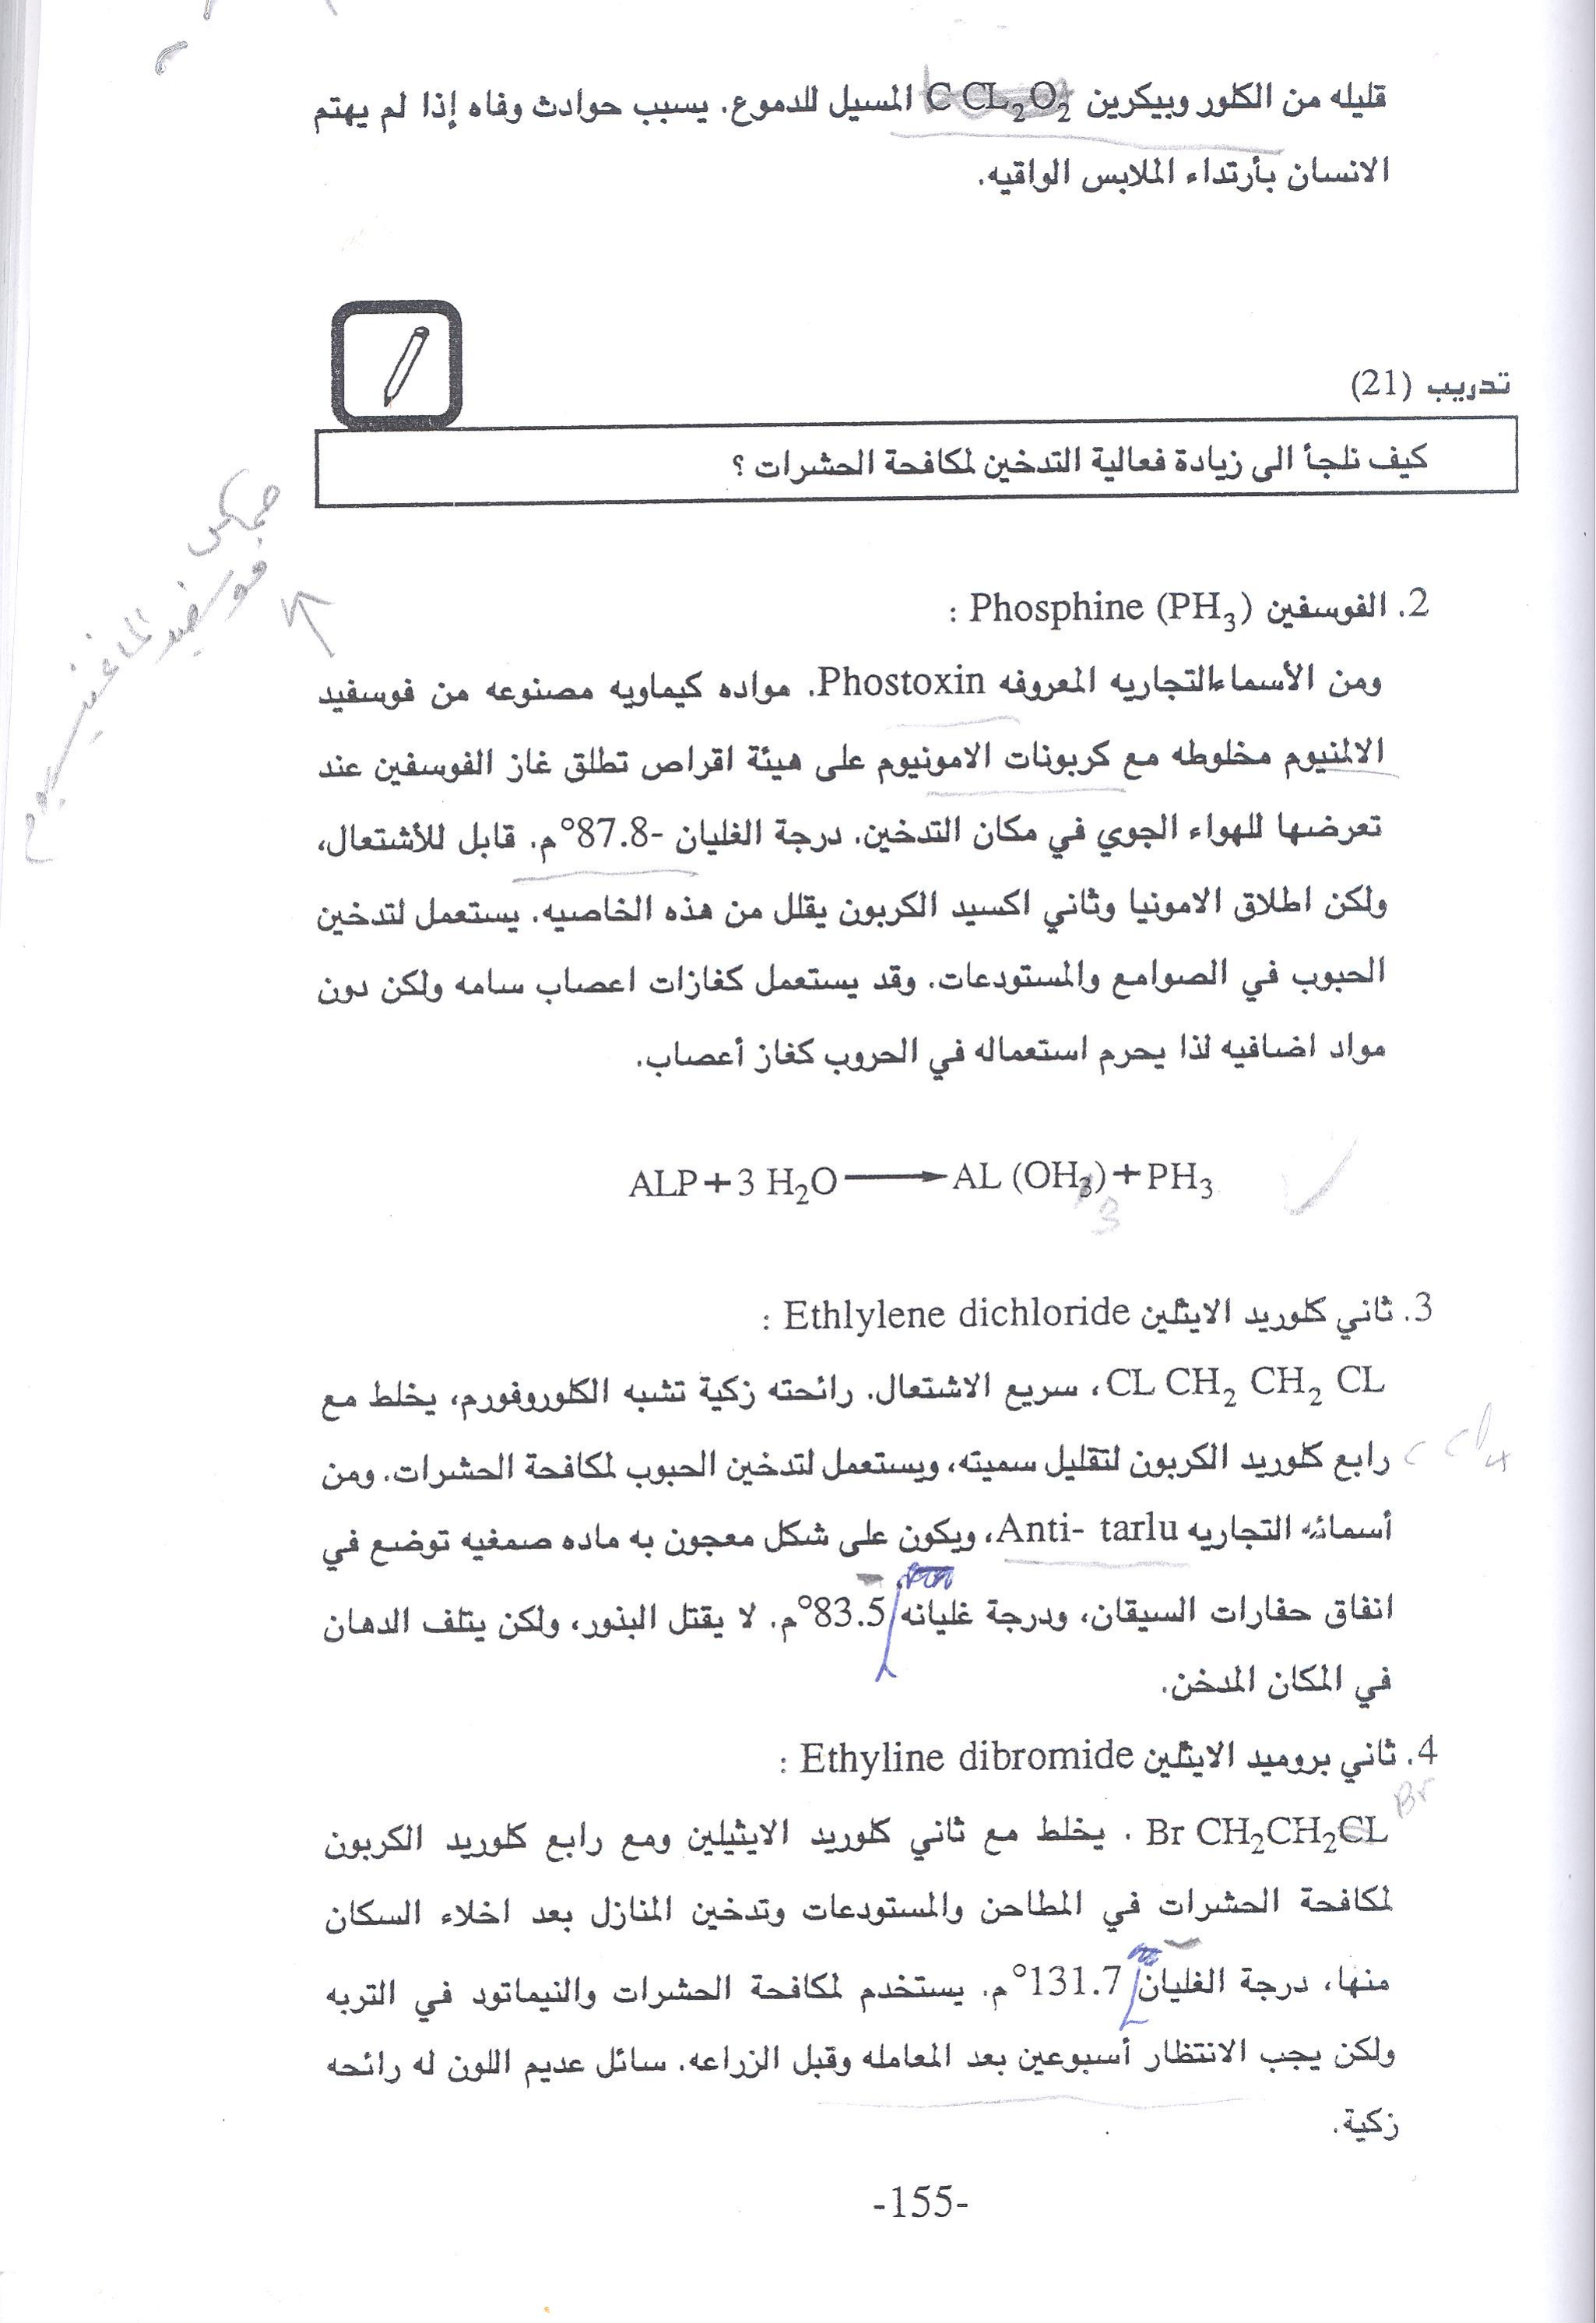 قليله من الكلور وبيكرين C CL2O2 المسيل للدموع. يسبب حوادث وفاه إذا لم يهتم
الانسان بأرتداء الملابس الواقيه.
تدريب (21)
كيف نلجأ الى زيادة فعالية التدخين لمكافحة الحشرات ؟
2. الفوسفين Phosphine (PH3) :
ومن الأسماءالتجاريه المعروفه Phostoxin. مواده كيماويه مصنوعه من فوسفيد
الالمنيوم مخلوطه مع كربونات الامونيوم على هيئة اقراص تطلق غاز الفوسفين عند
تعرضها للهواء الجوي في مكان التدخين. درجة الغليان -87.8° م. قابل للأشتعال،
ولكن اطلاق الامونيا وثاني اكسيد الكربون يقلل من هذه الخاصيه. يستعمل لتدخين
الحبوب في الصوامع والمستودعات. وقد يستعمل كغازات اعصاب سامه ولكن دون
مواد اضافيه لذا يحرم استعماله في الحروب كغاز أعصاب.
فوسفيد الماغنيسيوم
ALP+3 H2O → AL (OH3)+PH3
3
3. ثاني كلوريد الايثلين Ethlylene dichloride :
CL CH2 CH2 CL، سريع الاشتعال. رائحته زكية تشبه الكلوروفورم، يخلط مع
رابع كلوريد الكربون لتقليل سميته، ويستعمل لتدخين الحبوب لمكافحة الحشرات. ومن
CCl4
أسمائه التجاريه Anti- tarlu، ويكون على شكل معجون به ماده صمغيه توضع في
انفاق حفارات السيقان، ودرجة غليانه 83.5°م. لا يقتل البنور، ولكن يتلف الدهان
في المكان المدخن.
4. ثاني بروميد الايثلين Ethyline dibromide :
Br
Br CH2CH2CL . يخلط مع ثاني كلوريد الايثيلين ومع رابع كلوريد الكربون
لمكافحة الحشرات في المطاحن والمستودعات وتدخين المنازل بعد اخلاء السكان
منها، درجة الغليان 131.7° م. يستخدم لمكافحة الحشرات والنيماتود في التربه
ولكن يجب الانتظار أسبوعين بعد المعامله وقبل الزراعه. سائل عديم اللون له رائحه
زكية.
-155-